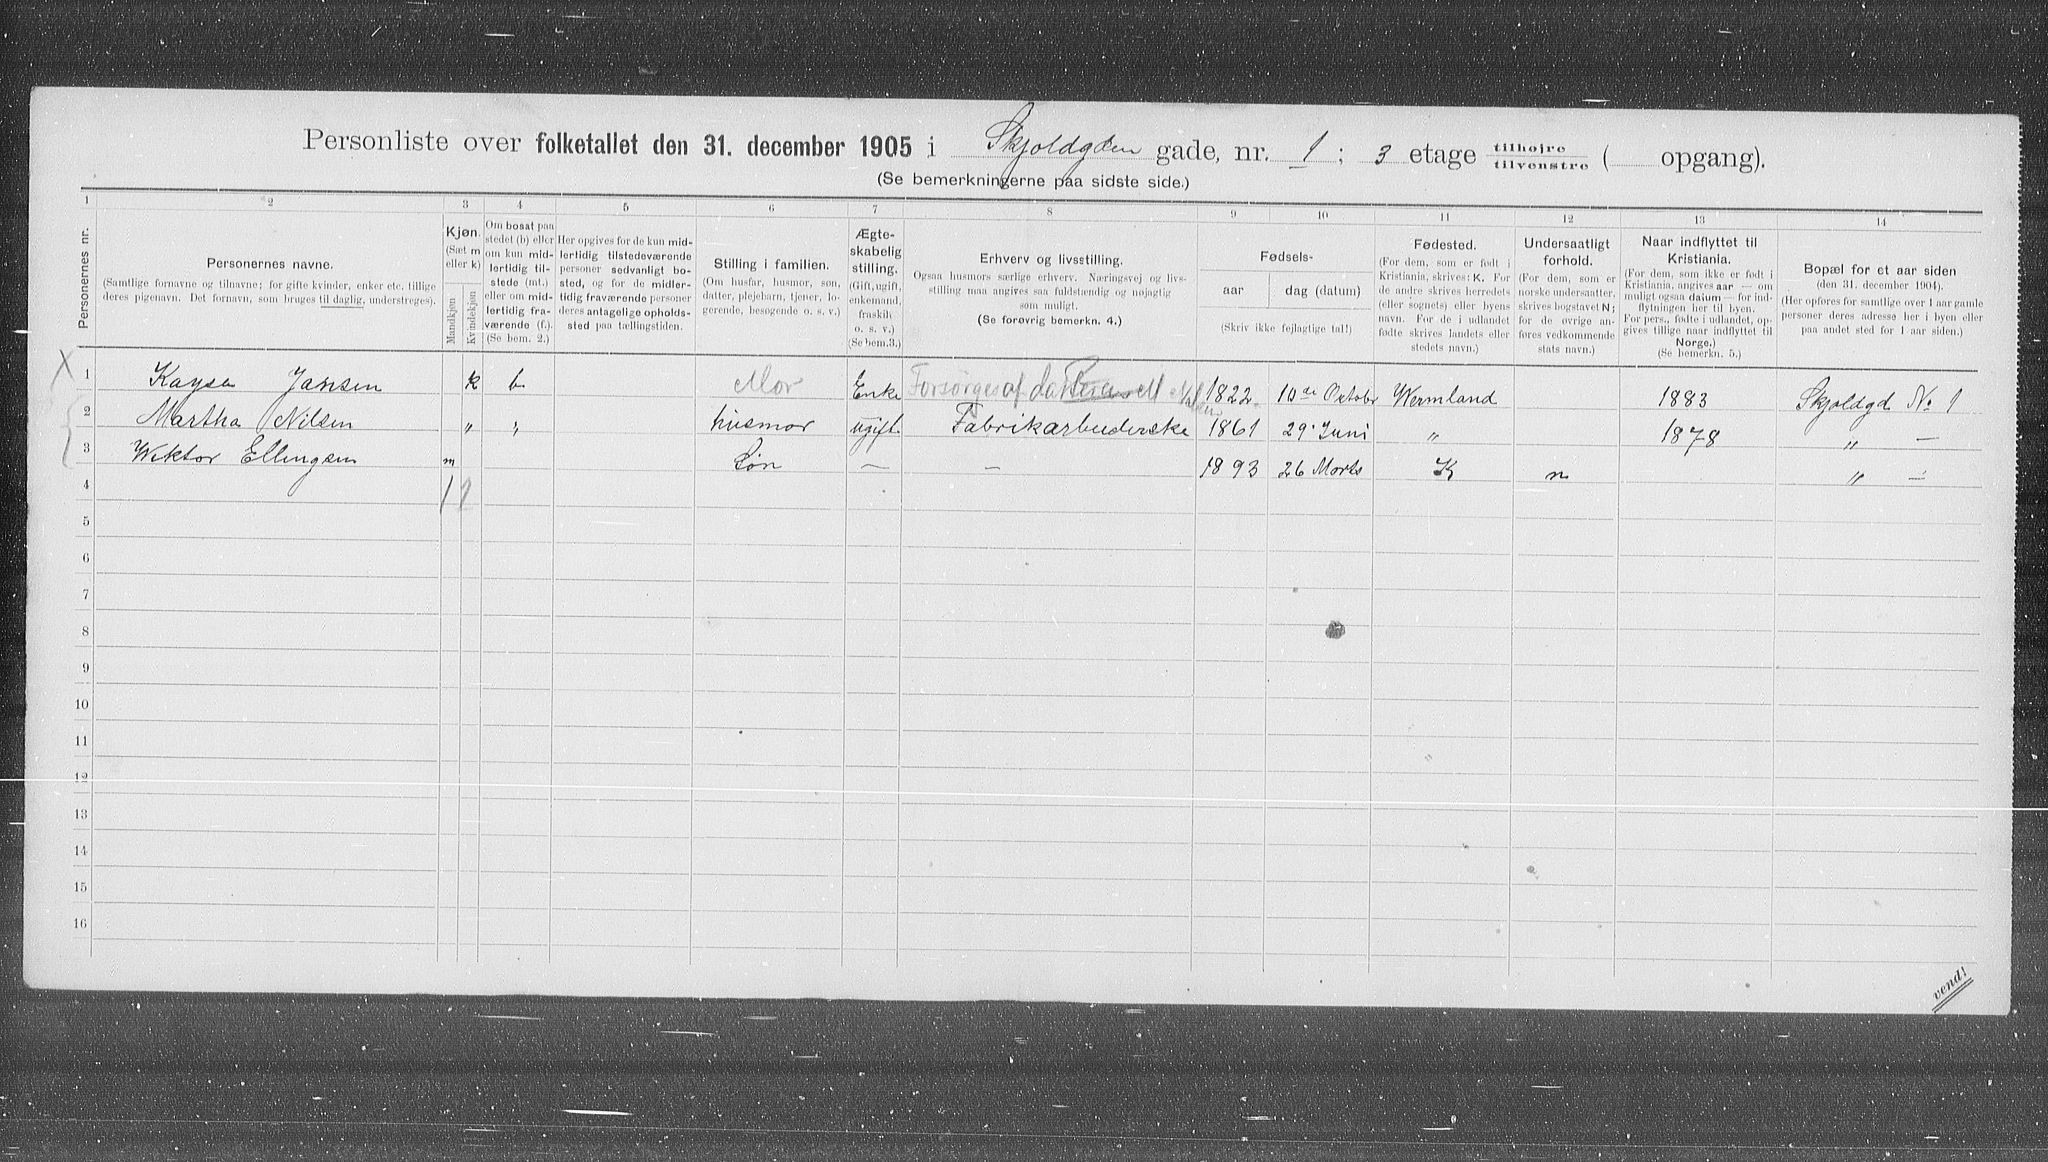 Personliste over folketallet den 31. december 1905 i Skjoldgden gade, nr. 1 ; 3 etage tilhøjre tilvenstre ( opgang).
(Se bemerkningerne paa sidste side.)
1 2 3 4 5 6 7 8 9 10 11 12 13 14
Personernes nr.
Personernes navne.
(Samtlige fornavne og tilnavne; for gifte kvinder, enker etc. tillige deres pigenavn. Det fornavn, som bruges til daglig, understreges).
Kjøn.
(Sæt m eller k)
Mandkjøn
Kvindekjøn
Om bosat paa stedet (b) eller om kun midlertidig tilstede (mt.) eller om midlertidig fraværende (f.). (Se bem. 2.)
Her opgives for de kun midlertidig tilstedeværende personer sedvanligt bosted, og for de midlertidig fraværende personer deres antagelige opholdssted paa tællingstiden.
Stilling i familien.
(Om husfar, husmor, søn, datter, plejebarn, tjener, logerende, besøgende o. s. v.)
Ægteskabelig stilling.
(Gift, ugift, enkemand, fraskilt o. s. v.)
(Se bem.3.)
Erhverv og livsstilling.
Ogsaa husmors særlige erhverv. Næringsvej og livsstilling maa angives saa fuldstændig og nøjagtig som muligt.
(Se forøvrig bemerkn. 4.)
Fødsels-
aar
dag (datum)
(Skriv ikke fejlagtige tal!)
Fødested.
(For dem, som er født i Kristiania, skrives: K. For de andre skrives herredets (eller sognets) eller byens navn. For de i udlandet fødte skrives landets eller stedets navn.)
Undersaatligt forhold.
(For dem, som er norske undersaatter, skrives bogstavet N; for de øvrige anføres vedkommende stats navn.)
Naar indflyttet til Kristiania.
(For dem, som ikke er født i Kristiania, angives aar — om muligt ogsaa datum — for indflytningen her til byen. For pers., fødte i udlandet, opgives tillige naar indflyttet til Norge.)
(Se bemerkn. 5.)
Bopæl for et aar siden
(den 31. december 1904.)
(Her opføres for samtlige over 1 aar gamle personer deres adresse her i byen eller paa andet sted for 1 aar siden.)
X 1 Kaysa Jansen k b Mor Enke Forsørges af datteren 1822 10de Octobr Wermland 1883 Skjoldgd No 1
2 Martha Nilsen " " husmor ugift Fabrikarbeiderske 1861 29' Juni " 1878 " —
3 Wiktor Ellingsen m Søn — — 1893 26 Marts K n " —
4 1 2
5
6
7
8
9
10
11
12
13
14
15
16
vend!